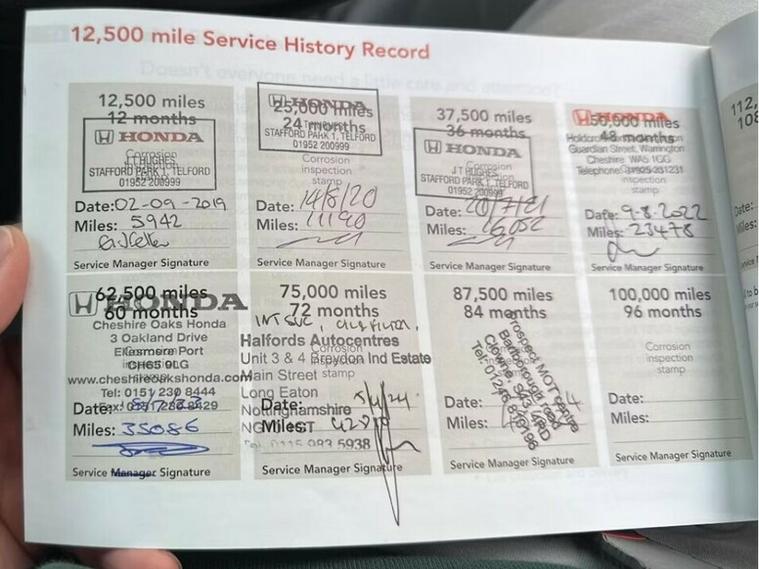 12,500 mile Service History Record
12,500 miles
12 months
HONDA
Corrosion
J T HUGHES,
STAFFORD PARK 1, TELFORD
01952 200999
stamp
Date: 02-09-2019
Miles: 5942
Service Manager Signature
25,000 miles
24 months
HONDA
STAFFORD PARK 1, TELFORD
01952 200999
Corrosion
inspection
stamp
Date: 14/8/20
Miles: 11190
Service Manager Signature
37,500 miles
36 months
HONDA
Corrosion
J T HUGHES
STAFFORD PARK 1, TELFORD
01952 200999
stamp
Date: 20/7/21
Miles: 16052
Service Manager Signature
50,000 miles
HONDA
48 months
Guardian Street, Warrington
Cheshire WA5 1GG
Telephone
inspection
stamp
Date: 9-8-2022
Miles: 23478
Service Manager Signature
62,500 miles
HONDA
60 months
Cheshire Oaks Honda
3 Oakland Drive
Ellesmere Port
CH65 9LG
www.cheshireoakshonda.com
Tel: 0151 230 8444
Date:
Miles: 35086
Service Manager Signature
75,000 miles
72 months
Halfords Autocentres
Unit 3 & 4 Ind Estate
Main Street
stamp
Long Eaton
Nottinghamshire
Date:
Miles:
5938
Service Manager Signature
87,500 miles
84 months
Prospect MOT Centre
Clowne, S43
Tel: 01246
Service Manager Signature
100,000 miles
96 months
Corrosion
inspection
stamp
Date:
Miles:
Service Manager Signature
112,
108
Date:
Miles: